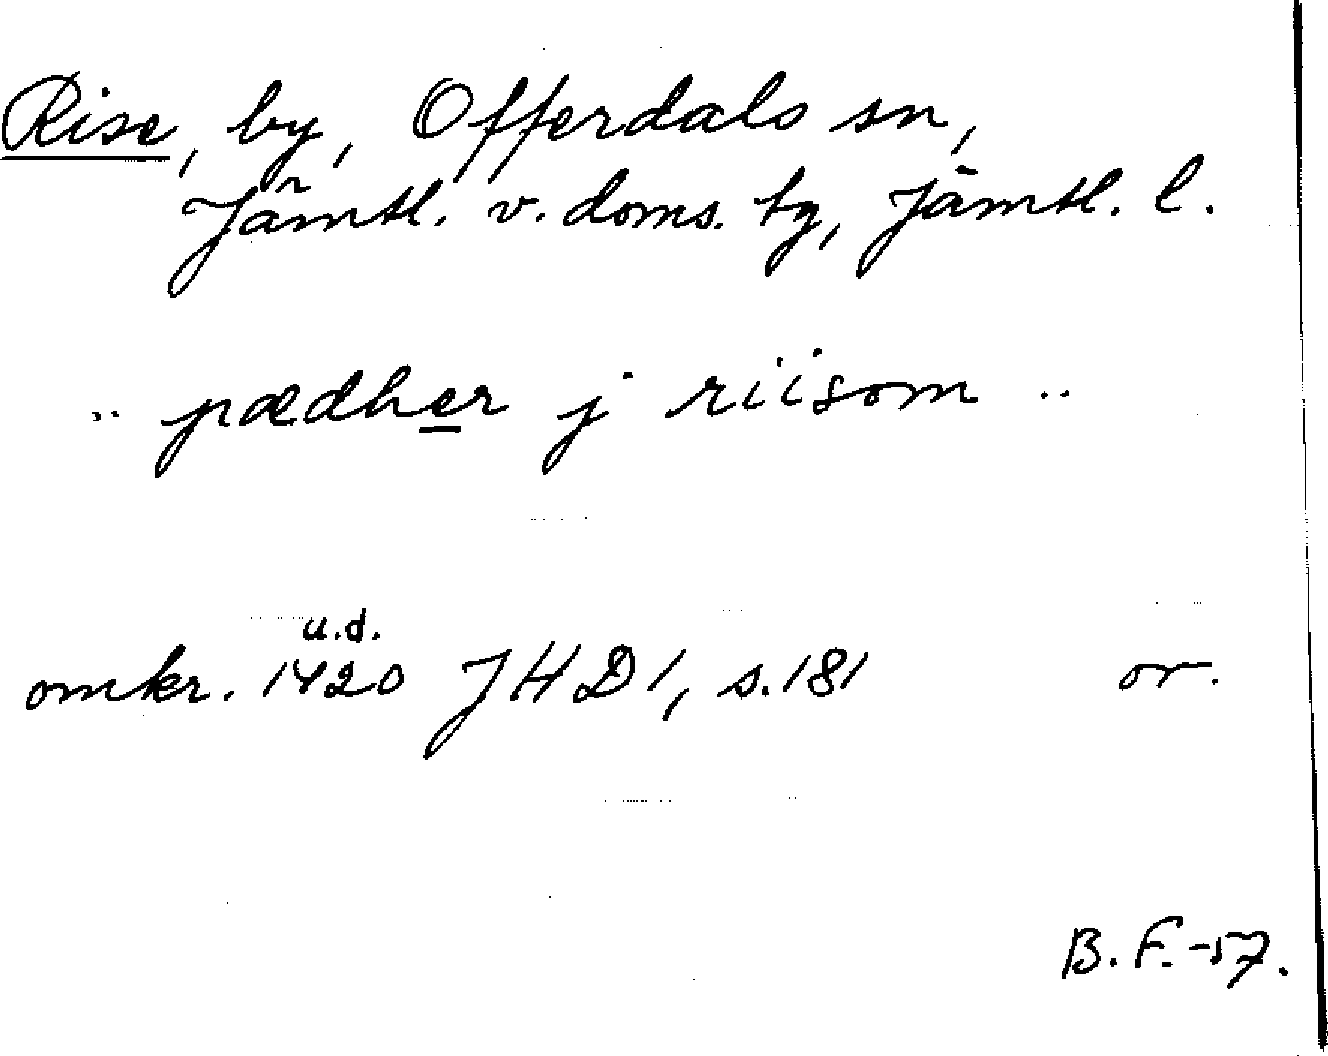 Rise, by, Offerdals sn,
Jämtl. v. doms. tg, Jämtl. l.
.. pædher j riisom ..
u.d.
omkr. 1420 JHD 1, s. 181 or.
B. F. -57.